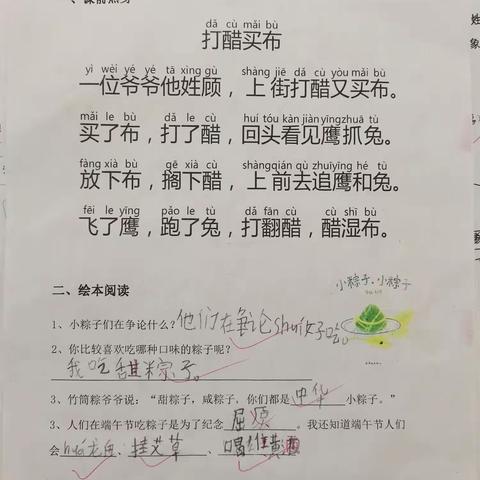 dǎ cù mǎi bù
打醋买布
yì wèi yé yé tā xìng gù shàng jiē dǎ cù yòu mǎi bù
一位爷爷他姓顾，上街打醋又买布。
mǎi le bù dǎ le cù huí tóu kàn jiàn yīng zhuā tù
买了布，打了醋，回头看见鹰抓兔。
fàng xià bù gē xià cù shàng qián qù zhuī yīng hé tù
放下布，搁下醋，上前去追鹰和兔。
fēi le yīng pǎo le tù dǎ fān cù cù shī bù
飞了鹰，跑了兔，打翻醋，醋湿布。
二、绘本阅读
小粽子，小粽子
1、小粽子们在争论什么？他们在争论shuí好吃。
2、你比较喜欢吃哪种口味的粽子呢？
我吃甜粽子。
3、竹筒粽爷爷说：“甜粽子，咸粽子，你们都是中华小粽子。”
3、人们在端午节吃粽子是为了纪念屈原。我还知道端午节人们
会huá龙舟、挂艾草、喝雄黄酒